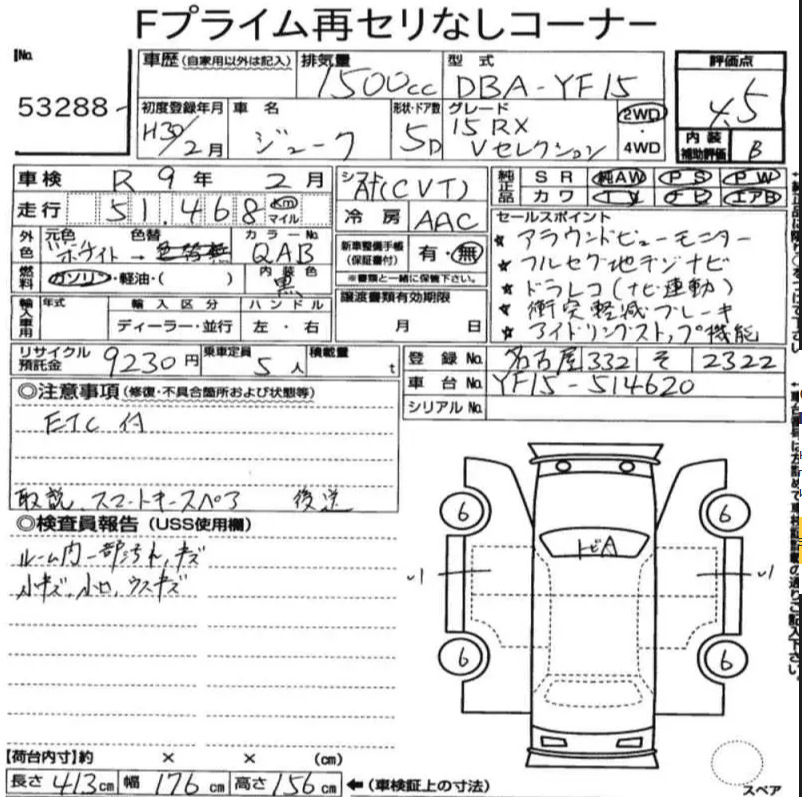 Fプライム再セリなしコーナー
No.
53288
車歴 (自家用以外は記入)
排気量
1500cc
型式
DBA-YF15
評価点
4.5
内装補助評価
B
初度登録年月
H30/2月
車名
ジューク
形状・ドア数
5D
グレード
15RX
Vセレクション
2WD
・
4WD
車検 R 9年 2月
走行 51,468 km マイル
シフト
AT(CVT)
冷房 AAC
純正品 SR 純AW PS PW
カワ TV ナビ エアB
外色 元色 色替 カラーNo.
ホワイト → 色替無 QAB
燃料 ガソリン・軽油・( )
内装色 黒
新車整備手帳(保証書付) 有・無
※書類と一緒に保管下さい。
セールスポイント
★ アラウンドビューモニター
★ フルセグ地デジナビ
★ ドラレコ(ナビ連動)
★ 衝突軽減ブレーキ
★ アイドリングストップ機能
輸入車用 年式 輸入区分 ハンドル
ディーラー・並行 左・右
譲渡書類有効期限
月 日
リサイクル預託金 9230円 乗車定員 5人 積載量 t
登録No. 名古屋 332 そ 2322
車台No. YF15-514620
シリアルNo.
◎注意事項 (修復・不具合箇所および状態等)
ETC付
取説、スマートキースペア 後送
◎検査員報告 (USS使用欄)
ルーム内一部汚れ、キズ
小キズ、小凹、ウスキズ
6
6
トビA
6
6
【荷台内寸】約 × × (cm)
長さ 413cm 幅 176cm 高さ 156cm ←(車検証上の寸法)
スペア